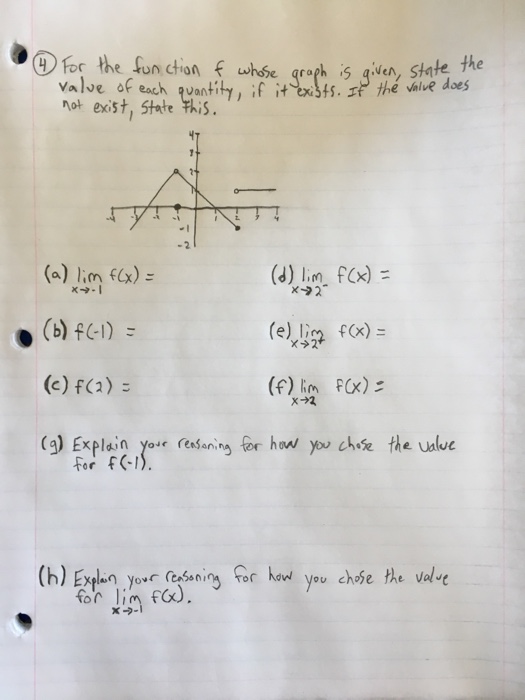 ④ For the function f whose graph is given, state the
value of each quantity, if it exists. If the value does
not exist, state this.
4
3
2
1
-4 -3 -2 -1 1 2 3 4
-1
-2
(a) lim f(x) =
x→-1
(d) lim f(x) =
x→2⁻
(b) f(-1) =
(e) lim f(x) =
x→2⁺
(c) f(2) =
(f) lim f(x) =
x→2
(g) Explain your reasoning for how you chose the value
for f(-1).
(h) Explain your reasoning for how you chose the value
for lim f(x).
x→-1